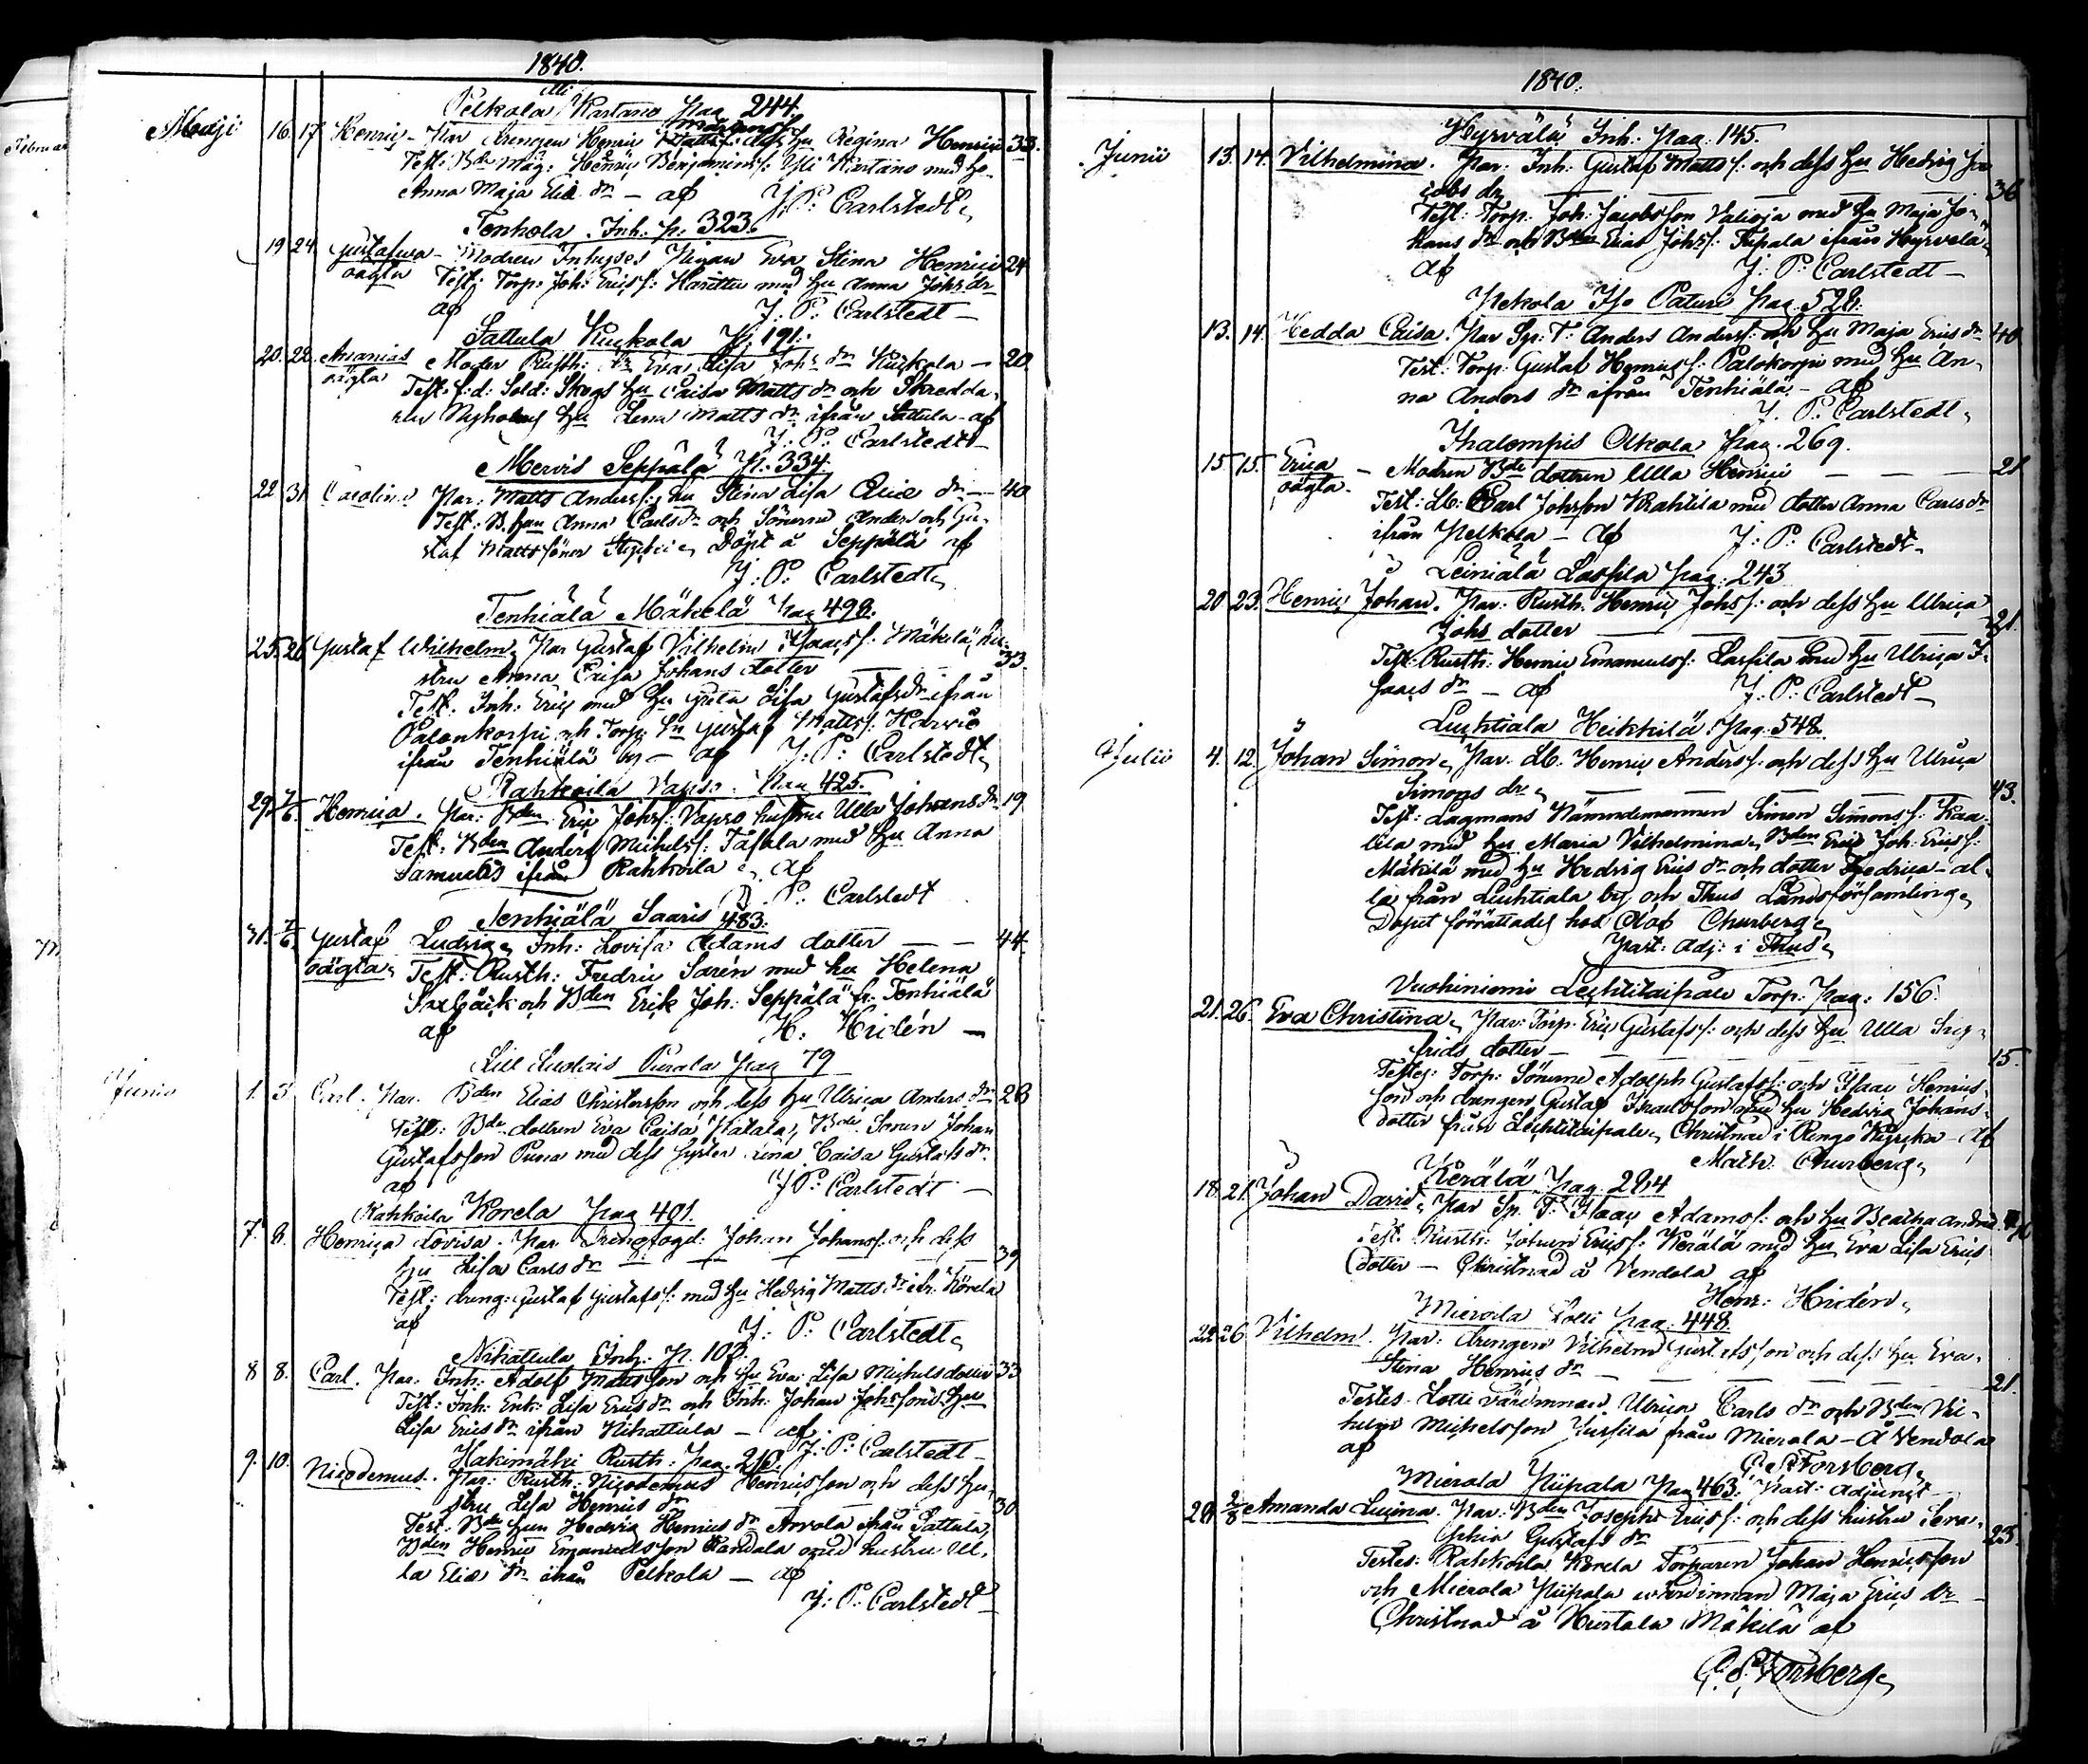 1840.
Pelkola Alli Kartano pag 244.
Maji 16. 17. Henric - Par Drengen Henric Mårtensf. hu Regina Henrici 33.
Test: Bde Måg: Henric Benjaminsf: Ylli Kartano med hu
Anna Maja Elie dr - af J: P: Carlstedt
Tenhola. Inh: p: 323.
19 24. Gustafwa - Modren Inhyses Pigan Eva Stina Henrici 24
oägta Test: Torp: Joh: Ericsf: Karittu med hu Anna Johs dr
af J: P: Carlstedt -
Sattula Kuckola p. 191.
20. 22. Ananias Moder Rusth: dr Eva Lisa Johs dr Kuckola - 20.
oägta Test: f:d: Sold: Skogs hu Caisa Matts dr och Skredda-
ren Nyholms hu Lena Matts dr ifrån Sattula - af
J: P: Carlstedt -
Mervis Seppälä p: 334.
22 31. Carolina Par: Matts Andersf: hu Stina Lisa Elie dr - 40.
Test: B. hun Anna Carls dr och Sönerne Anders och Gu-
staf Mattssöner Döpt å Seppälä af
J: P: Carlstedt
Tenhiälä Mäkelä pag 498.
25. 26 Gustaf Wilhelm Par Gustaf Vilhelm Isaacsf: Mäkelä, hu- 33.
stru Anna Caisa Johans dotter
Test: Inh: Eric med hu Greta Lisa Gustafs dr ifrån
Palonkorpi och Torp: hu Gustaf Mattsf: Harvio
ifrån Tenhiälä by - af J: P: Carlstedt
Rahkoila Vapso. Pag 425.
29. 7/6. Henrica. Par: Bden Eric Johsf: Vapso hustru Ulla Johans dr 19.
Test: Bden Anders Michelsf: Tapala med hu Anna
Samuels ifrån Rahkoila af
J. P: Carlstedt
Tenhiälä Saaris 483.
31. 7/6. Gustaf Ludvig Inh: Lovisa Adams dotter - - 44.
oägta Test: Rusth: Fredric Sarén med hu Helena
Saxbäck och Bden Erik Joh: Seppälä fr: Tenhiälä
af H. Hidén -
Lill Luolais Purala pag 79
Junii 1. 3. Carl. Par. Bden Elias Christersson och dess hu Ulrica Anders dr 28
Test: Bde dottren Eva Caisa Patala, Bde Sonen Johan
Gustafsson Puna med dess syster Lena Caisa Gustafs dr
af J. P: Carlstedt -
Rahkoila Korela pag 401.
7. 8. Henrica Lovisa. Par Drengfogd: Johan Johansf: och dess 39
hu Lisa Carls dr
Test: dreng: Gustaf Gustafsf: med hu Hedvig Matts dr ifr: Korela
af J: P: Carlstedt
Nihattula Inh: p. 102.
8 8. Carl. Par: Inh: Adolf Mattsson och hu Eva Lisa Michelsdotter 33
Test: Inh: Enk: Lisa Erics dr och Inh: Johan Johssons hu
Lisa Erics dr ifrån Nihattula - af J: P: Carlstedt -
Hakimäki Rusth: pag. 218.
9. 10. Nicodemus. Par: Rusth: Nicodemus Henricsson och dess hu- 30
stru Lisa Henrics dr
Test: Bde hun Hedvig Henrics dr Arvola ifrån Sattula,
Bden Henric Emanuelsson Kandala med hustru Ul-
la Elie dr ifrån Pelkola - af
J: P: Carlstedt -
1840.
Hyrvälä Inh. pag. 145.
Junii 13. 14. Vilhelmina. Par: Inh: Gustaf Mattsf: och dess hu Hedvig Ja- 36
cobs dr
Test: Torp: Joh: Jacobsson Valioja med hu Maja Jo-
hans dr och Bden Elias Johsf: Tupala ifrån Hyrvelä
af J: P: Carlstedt -
Pekola Iso Paturi pag. 528.
13. 14. Hedda Caisa. Par Sp: T: Anders Andersf: och hu Maja Erics dr 40
Test: Torp: Gustaf Henricsf: Palokorpi med hu An-
na Anders dr ifrån Tenhiälä - af
J. P: Carlstedt
Ihalempis Olkola pag. 269.
15. 15. Erica - Modren Bde dottren Ulla Henrici 21
oägta. Test: Lb: Carl Johsson Krahtila med dotter Anna Carls dr
ifrån Pelkola - af J: P: Carlstedt -
Leiniälä Lassila pag: 243
20 23. Henric Johan. Par: Rusth. Henric Johsf: och dess hu Ulrica 21.
Johs dotter
Test: Rusth: Henric Emanuelsf: Lassila med hu Ulrica I-
saacs dr - af J: P: Carlstedt -
Luhtiala Heikkilä pag. 548.
Julii 4. 12 Johan Simon, Par. Lb. Henric Andersf: och dess hu Ulrica 43.
Simons dr
Test: Lagmans Nämndemannen Simon Simonsf: Kaa-
lila med hu Maria Vilhelmina, Bden Eric Joh: Ericsf:
Mäkilä med hu Hedvig Erics dr och dotter Fredrica - al-
la från Luhtiala by och Thus Landsförsamling
Dopet förrättades hos Olof Churberg
Past: adj: i Thus
Vuohiniemi Lehtitaipale Torp: pag: 156.
21. 26. Eva Christina, Par: Torp: Eric Gustafsf: och dess hu Ulla Sig- 15.
frids dotter -
Testes: Torp: Sönerne Adolph Gustafsf: och Isaac Henrics-
son och drengen Gustaf Israelsson med hu Hedvig Johans-
dotter från Lehtitaipale, Christnad i Rengo Kyrcka af
Math. Churberg
Kerälä pag 294
18. 21. Johan David, Par Sp. T. Isaac Adamsf: och hu Beatha Andrie.
Test. Rusth: Johan Ericsf: Kerälä med hu Eva Lisa Erics
dotter - Christnad å Vendola af
Henr: Hidén
Mierola Lotti pag: 448.
22 26. Vilhelm. Par: drengen Vilhelm Gustafsson och dess hu Eva. 21.
Stina Henrics dr
Testes Lotti värdinnan Ulrica Carls dr och Bden Vil-
helm Michelsson Yussila från Mierola - å Vendola
af C. E. Forsberg
Past: Adjunct
Mierola Piipala Pag 463.
28. 2/8 Amanda Lucina. Par: Bden Joseph Ericsf: och dess hustru Sera- 23.
phia Gustafs dr
Testes: Rahkoila Korela Torparen Johan Henricsson
och Mierola Piipala värdinnan Maja Erics dr
Christnad å Hurtala Mäkilä af
C. E. Forsberg